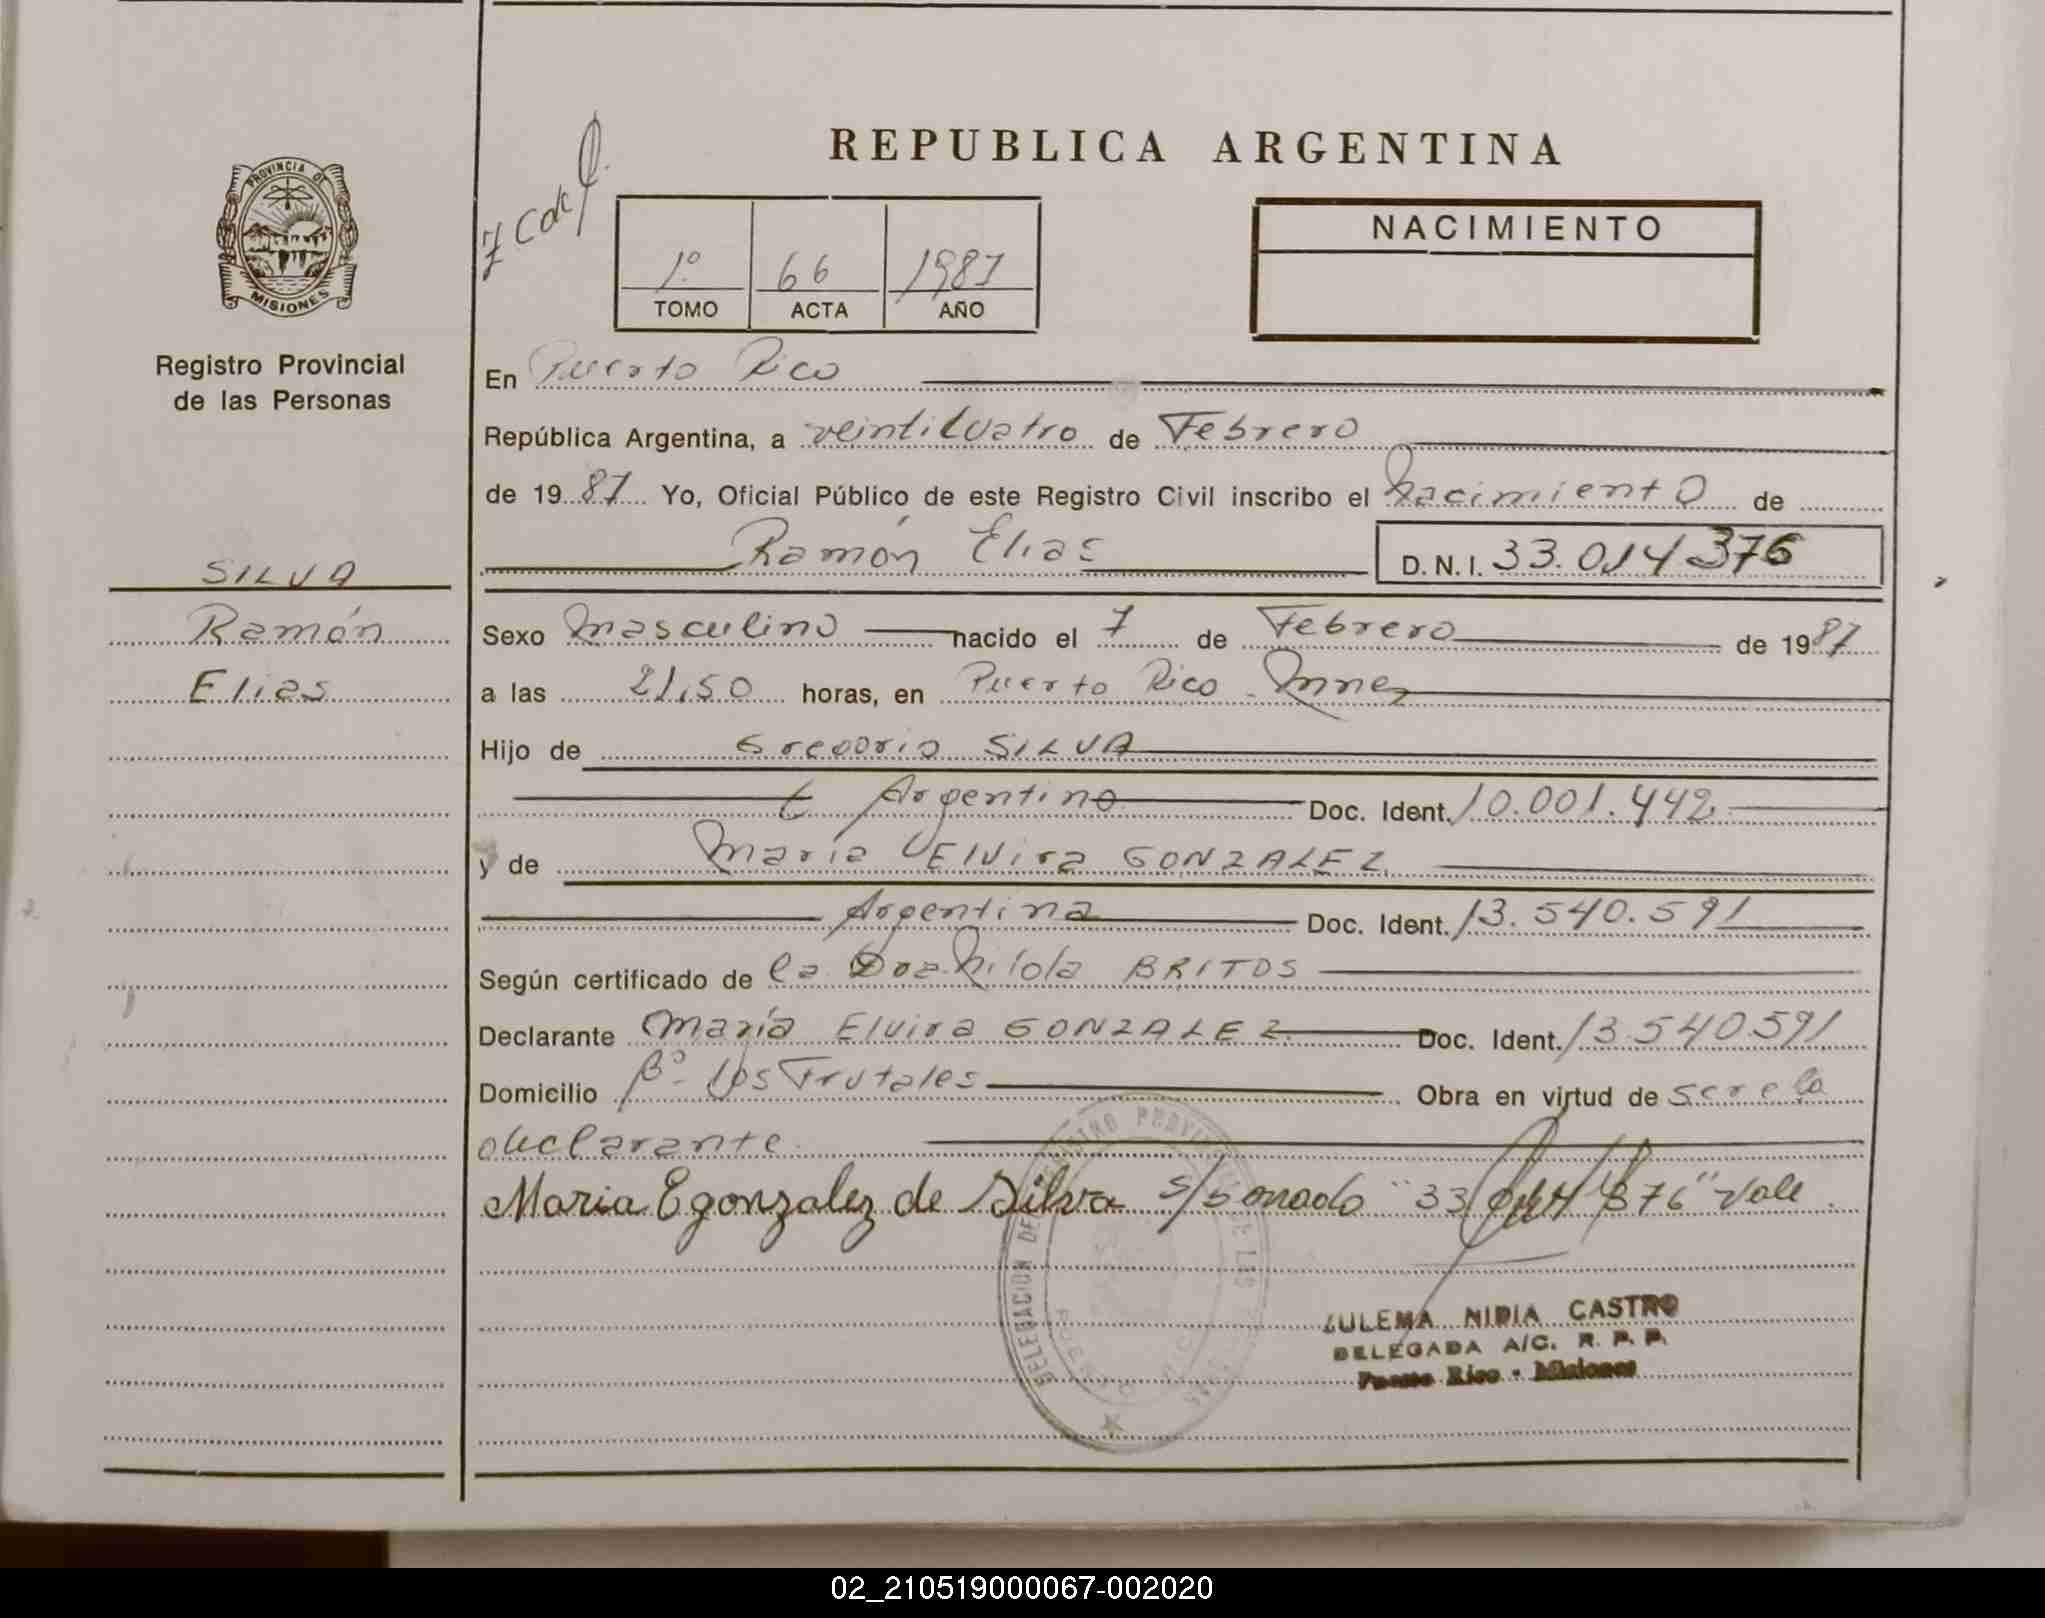 REPUBLICA ARGENTINA
PROVINCIA DE
MISIONES
Registro Provincial
de las Personas
SILVA
Ramón
Elias
1º 66 1987
TOMO ACTA AÑO
NACIMIENTO
En Puerto Rico
República Argentina, a veinticuatro de Febrero
de 1987 Yo, Oficial Público de este Registro Civil inscribo el Nacimiento de
Ramón Elias D.N.I. 33.014376
Sexo Masculino nacido el 7 de Febrero de 1987
a las 21,50 horas, en Puerto Rico - Mnes
Hijo de Gregorio SILVA
Argentino Doc. Ident. 10.001.442
y de María Elvira GONZALEZ
Argentina Doc. Ident. 13.540.591
Según certificado de la Dra. Nilda BRITOS
Declarante María Elvira GONZALEZ Doc. Ident. 13.540.591
Domicilio Bº Los Frutales Obra en virtud de ser la
declarante.
Maria E gonzalez de Silva s/bonado "33 376" Vale.
DELEGACION DEL REGISTRO PROVINCIAL DE LAS PERSONAS
PUERTO RICO
ZULEMA NIDIA CASTRO
DELEGADA A/C. R. P. P.
Puerto Rico - Misiones
02_210519000067-002020